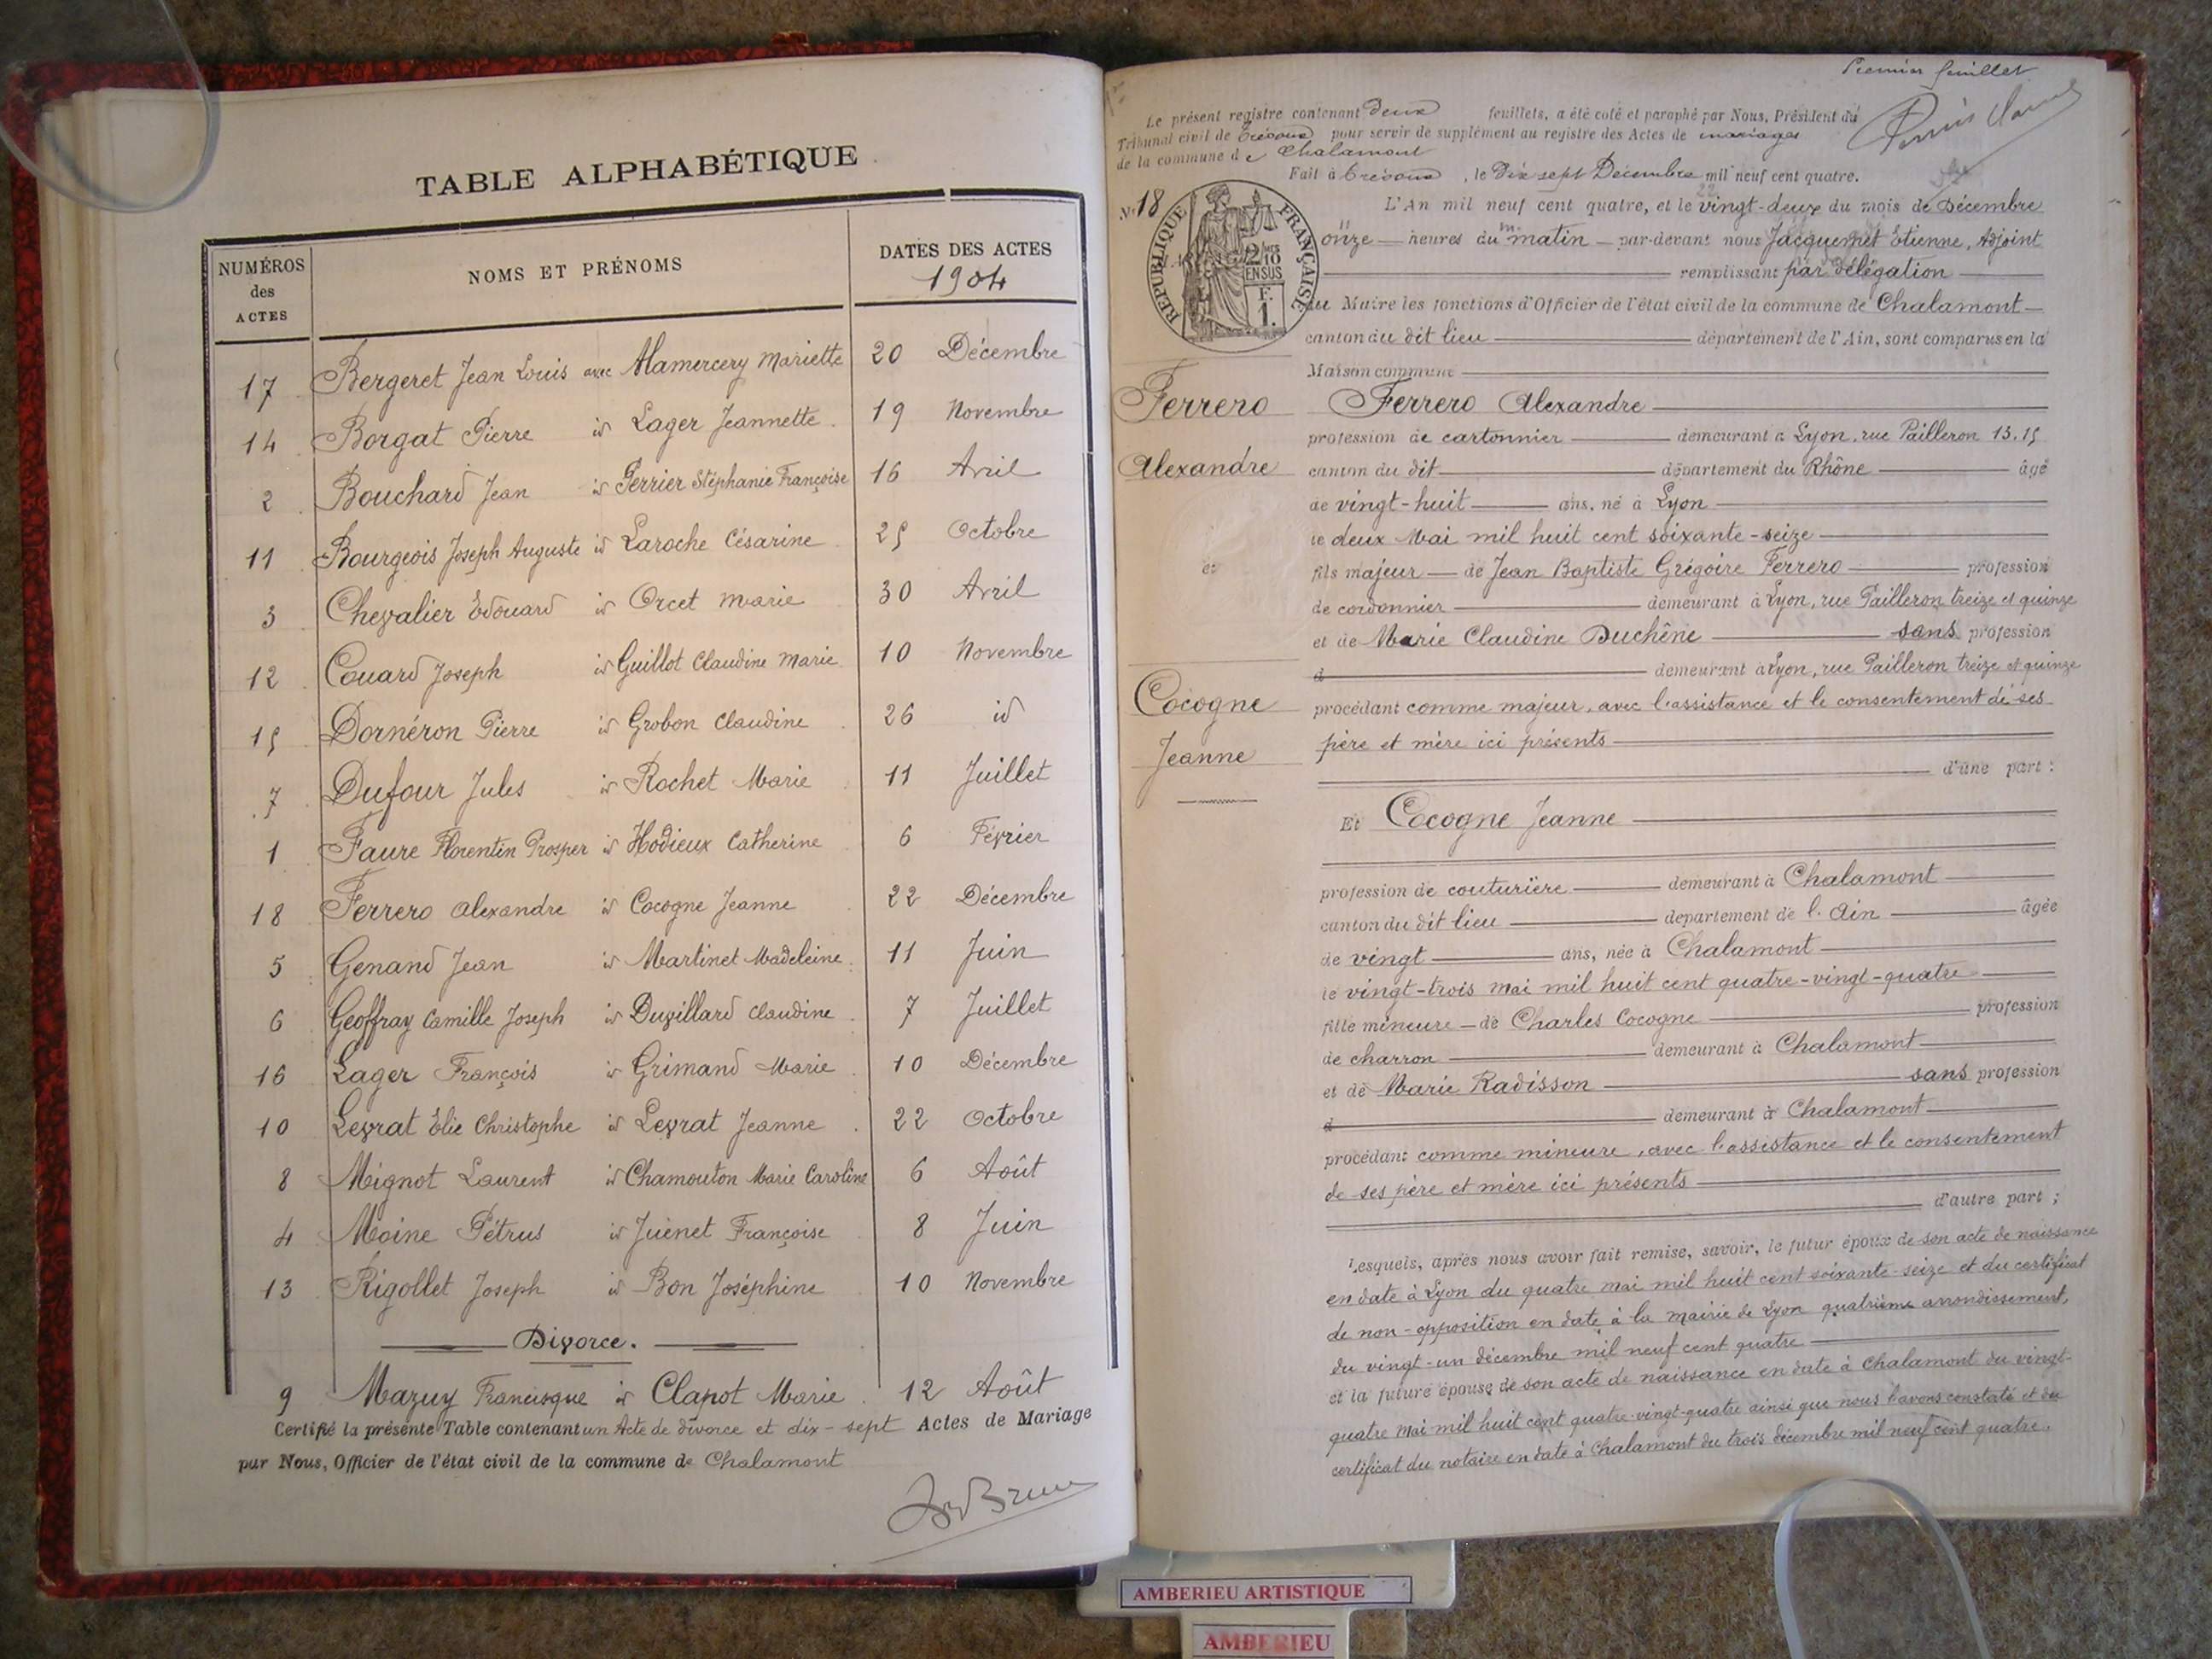 TABLE ALPHABÉTIQUE
NUMÉROS des ACTES
NOMS ET PRÉNOMS
DATES DES ACTES 1904
17 Bergeret Jean Louis avec Mamercery Mariette 20 Décembre
14 Borgat Pierre id Lager Jeannette. 19 Novembre
2 Bouchard Jean id Perrier Stéphanie Françoise 16 Avril
11 Bourgeois Joseph Auguste id Laroche Césarine 25 Octobre
3 Chevalier Edouard id Orcet Marie 30 Avril
12 Couard Joseph id Guillot Claudine Marie 10 Novembre
15 Dornéron Pierre id Grobon Claudine 26 id
7 Dufour Jules id Rochet Marie 11 Juillet
1 Faure Florentin Prosper id Hodieux Catherine 6 Février
18 Ferrero Alexandre id Cocogne Jeanne 22 Décembre
5 Genand Jean id Martinet Madeleine 11 Juin
6 Geoffray Camille Joseph id Duvillard Claudine 7 Juillet
16 Lager François id Grimand Marie 10 Décembre
10 Levrat Elie Christophe id Levrat Jeanne 22 Octobre
8 Mignot Laurent id Chamouton Marie Caroline 6 Août
4 Moine Pétrus id Juénet Françoise 8 Juin
13 Rigollet Joseph id Bon Joséphine 10 Novembre
Divorce.
9 Mazuy Francisque id Clapot Marie 12 Août
Certifié la présente Table contenant un Acte de divorce et dix-sept Actes de Mariage
par Nous, Officier de l'état civil de la commune de Chalamont
Premier feuillet
Le présent registre contenant deux feuillets, a été coté et paraphé par Nous, Président du
Tribunal civil de Trévoux pour servir de supplément au registre des Actes de mariages
de la commune de Chalamont
Fait à Trévoux, le dix sept Décembre mil neuf cent quatre.
No 18
RÉPUBLIQUE FRANÇAISE
2/10 EN SUS
F. 1.
L'An mil neuf cent quatre, et le vingt-deux du mois de Décembre
onze heures du matin par-devant nous Jacquemet Etienne, Adjoint
remplissant par délégation
du Maire les fonctions d'Officier de l'état civil de la commune de Chalamont
canton du dit lieu département de l'Ain, sont comparus en la
Maison commune
Ferrero
Ferrero Alexandre
profession de cartonnier demeurant à Lyon, rue Pailleron 13.15
Alexandre
canton du dit département du Rhône âgé
de vingt-huit ans, né à Lyon
le deux Mai mil huit cent soixante-seize
et
fils majeur de Jean Baptiste Grégoire Ferrero profession
de cordonnier demeurant à Lyon, rue Pailleron treize et quinze
et de Marie Claudine Duchêne sans profession
d demeurant à Lyon, rue Pailleron treize et quinze
Cocogne
procédant comme majeur, avec l'assistance et le consentement de ses
Jeanne
père et mère ici présents
d'une part :
Et Cocogne Jeanne
profession de couturière demeurant à Chalamont
canton du dit lieu département de l'Ain âgée
de vingt ans, née à Chalamont
le vingt-trois Mai mil huit cent quatre-vingt-quatre
fille mineure de Charles Cocogne profession
de charron demeurant à Chalamont
et de Marie Radisson sans profession
d demeurant à Chalamont
procédant comme mineure, avec l'assistance et le consentement
de ses père et mère ici présents
d'autre part ;
Lesquels, après nous avoir fait remise, savoir, le futur époux de son acte de naissance
en date à Lyon du quatre mai mil huit cent soixante-seize et du certificat
de non-opposition en date à la mairie de Lyon quatrième arrondissement,
du vingt-un décembre mil neuf cent quatre
et la future épouse de son acte de naissance en date à Chalamont du vingt-
quatre Mai mil huit cent quatre-vingt-quatre ainsi que nous l'avons constaté et du
certificat du notaire en date à Chalamont du trois décembre mil neuf cent quatre.
AMBERIEU ARTISTIQUE
AMBERIEU